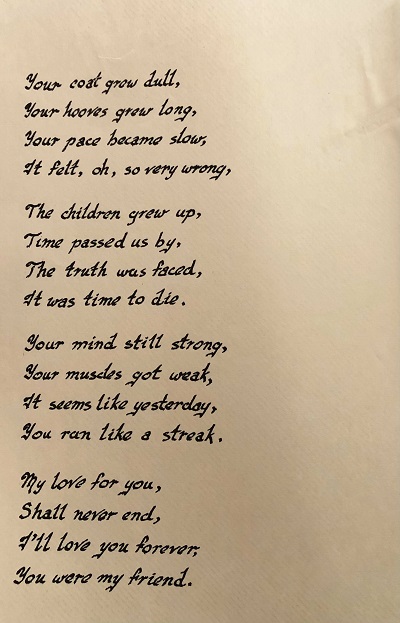 Your coat grew dull,
Your hooves grew long,
Your pace became slow,
It felt, oh, so very wrong,
The children grew up,
Time passed us by,
The truth was faced,
It was time to die.
Your mind still strong,
Your muscles got weak,
It seems like yesterday,
You ran like a streak.
My love for you,
Shall never end,
I'll love you forever,
You were my friend.